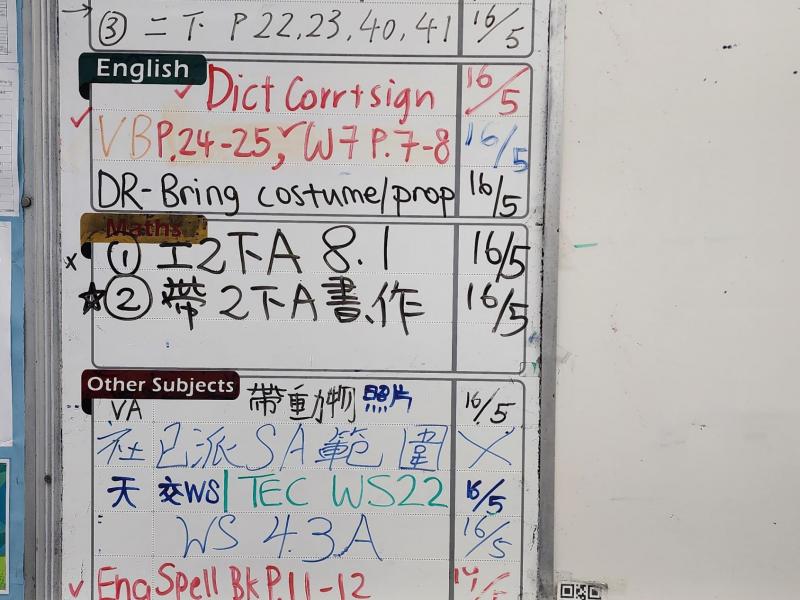 → ③ 二下 P22,23,40,41 16/5
English
✓ Dict Corr+sign 16/5
✓ VB P.24-25, ✓ W7 P.7-8 16/5
DR-Bring costume/prop 16/5
Maths
x ① 工2下A 8.1 16/5
☆ ② 帶2下A書、作 16/5
Other Subjects
VA 帶動物照片 16/5
社 已派SA範圍 X
天 交WS| TEC WS22 16/5
WS 4.3A 16/5
✓ Eng Spell Bk P.11-12